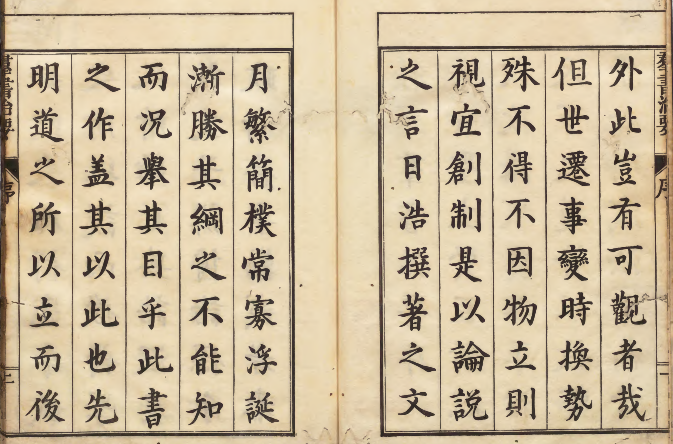 外此豈有可觀者哉
但世遷事變時換勢
殊不得不因物立則
視宜創制是以論説
之言日浩撰著之文
月繁簡樸常寡浮誕
漸勝其綱之不能知
而况舉其目乎此書
之作盖其以此也先
明道之所以立而後
羣書治要
序
二